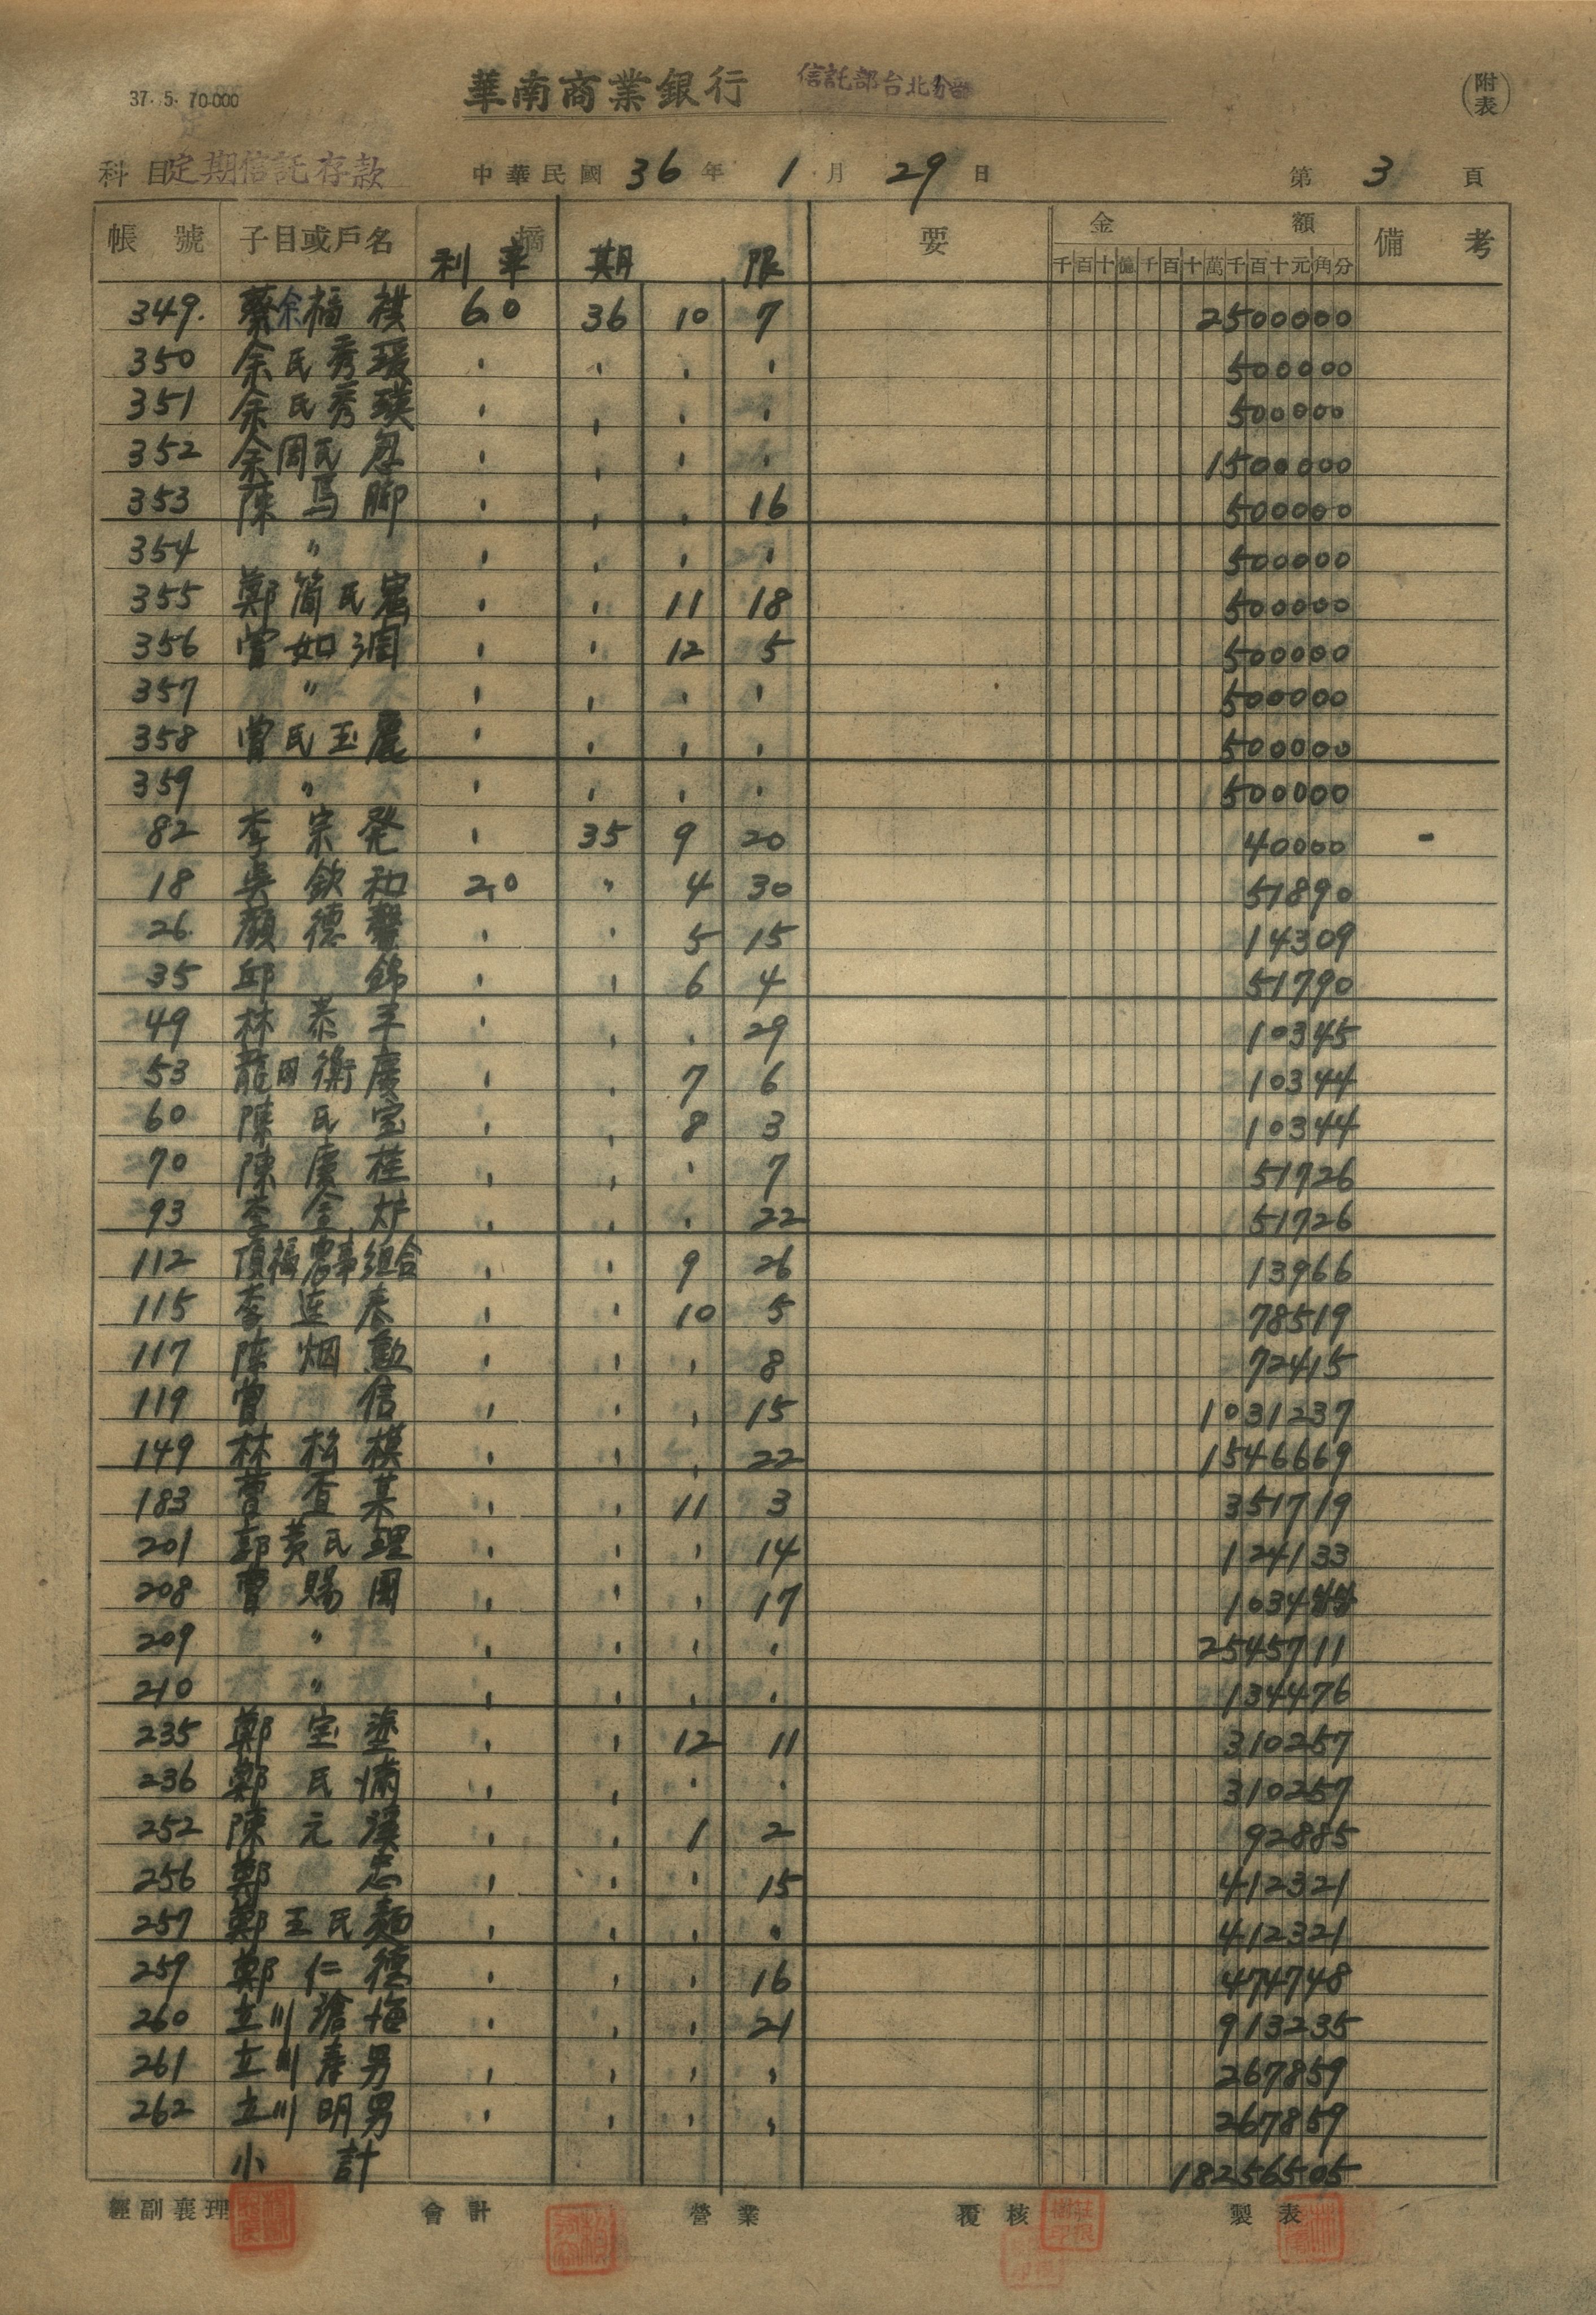 37. 5. 70.000
華南商業銀行 信託部台北分部
(附表)
科目 定期信託存款 中華民國 36 年 1 月 29 日 第 3 頁
帳號 子目或戶名 摘 要 金額 備考
利率 期 限 千百十億千百十萬千百十元角分
349. 蔡余福棋 6.0 36 10 7 2500000
350 余氏秀瑗 〃 〃 〃 〃 500000
351 余氏秀瑛 〃 〃 〃 〃 500000
352 余周氏忽 〃 〃 〃 〃 1500000
353 陳馬腳 〃 〃 〃 16 500000
354 〃 〃 〃 〃 〃 500000
355 鄭簡氏 〃 〃 11 18 500000
356 曾如 〃 〃 12 5 500000
357 〃 〃 〃 〃 〃 500000
358 曾氏玉麗 〃 〃 〃 〃 500000
359 〃 〃 〃 〃 〃 500000
82 李宗発 〃 35 9 20 40000 -
18 吳欽和 2.0 〃 4 30 51890
26 顏德馨 〃 〃 5 15 14309
35 邱錦 〃 〃 6 4 51790
49 林泰 〃 〃 〃 29 10345
53 龍岡衛慶 〃 〃 7 6 10344
60 陳氏宝 〃 〃 8 3 10344
70 陳慶桂 〃 〃 〃 7 51726
93 李金炉 〃 〃 〃 22 51726
112 頂福農事組合 〃 〃 9 26 13966
115 李連泰 〃 〃 10 5 78519
117 陳烟勳 〃 〃 〃 8 72415
119 曾信 〃 〃 〃 15 1031237
149 林松模 〃 〃 〃 22 1546669
183 曹查某 〃 〃 11 3 351719
201 郭黃氏 〃 〃 〃 14 124133
208 曹賜團 〃 〃 〃 17 1034
209 〃 〃 〃 〃 〃 2545711
210 〃 〃 〃 〃 〃 134476
235 鄭宝塗 〃 〃 12 11 310257
236 鄭氏滿 〃 〃 〃 〃 310257
252 陳元溪 〃 〃 1 2 92885
256 鄭忠 〃 〃 〃 15 412321
257 鄭王氏麺 〃 〃 〃 〃 412321
259 鄭仁德 〃 〃 〃 16 474748
260 立川滄梅 〃 〃 〃 21 913235
261 立川春男 〃 〃 〃 〃 267859
262 立川明男 〃 〃 〃 〃 267859
小計 18256505
經副襄理 會計 營業 覆核 製表